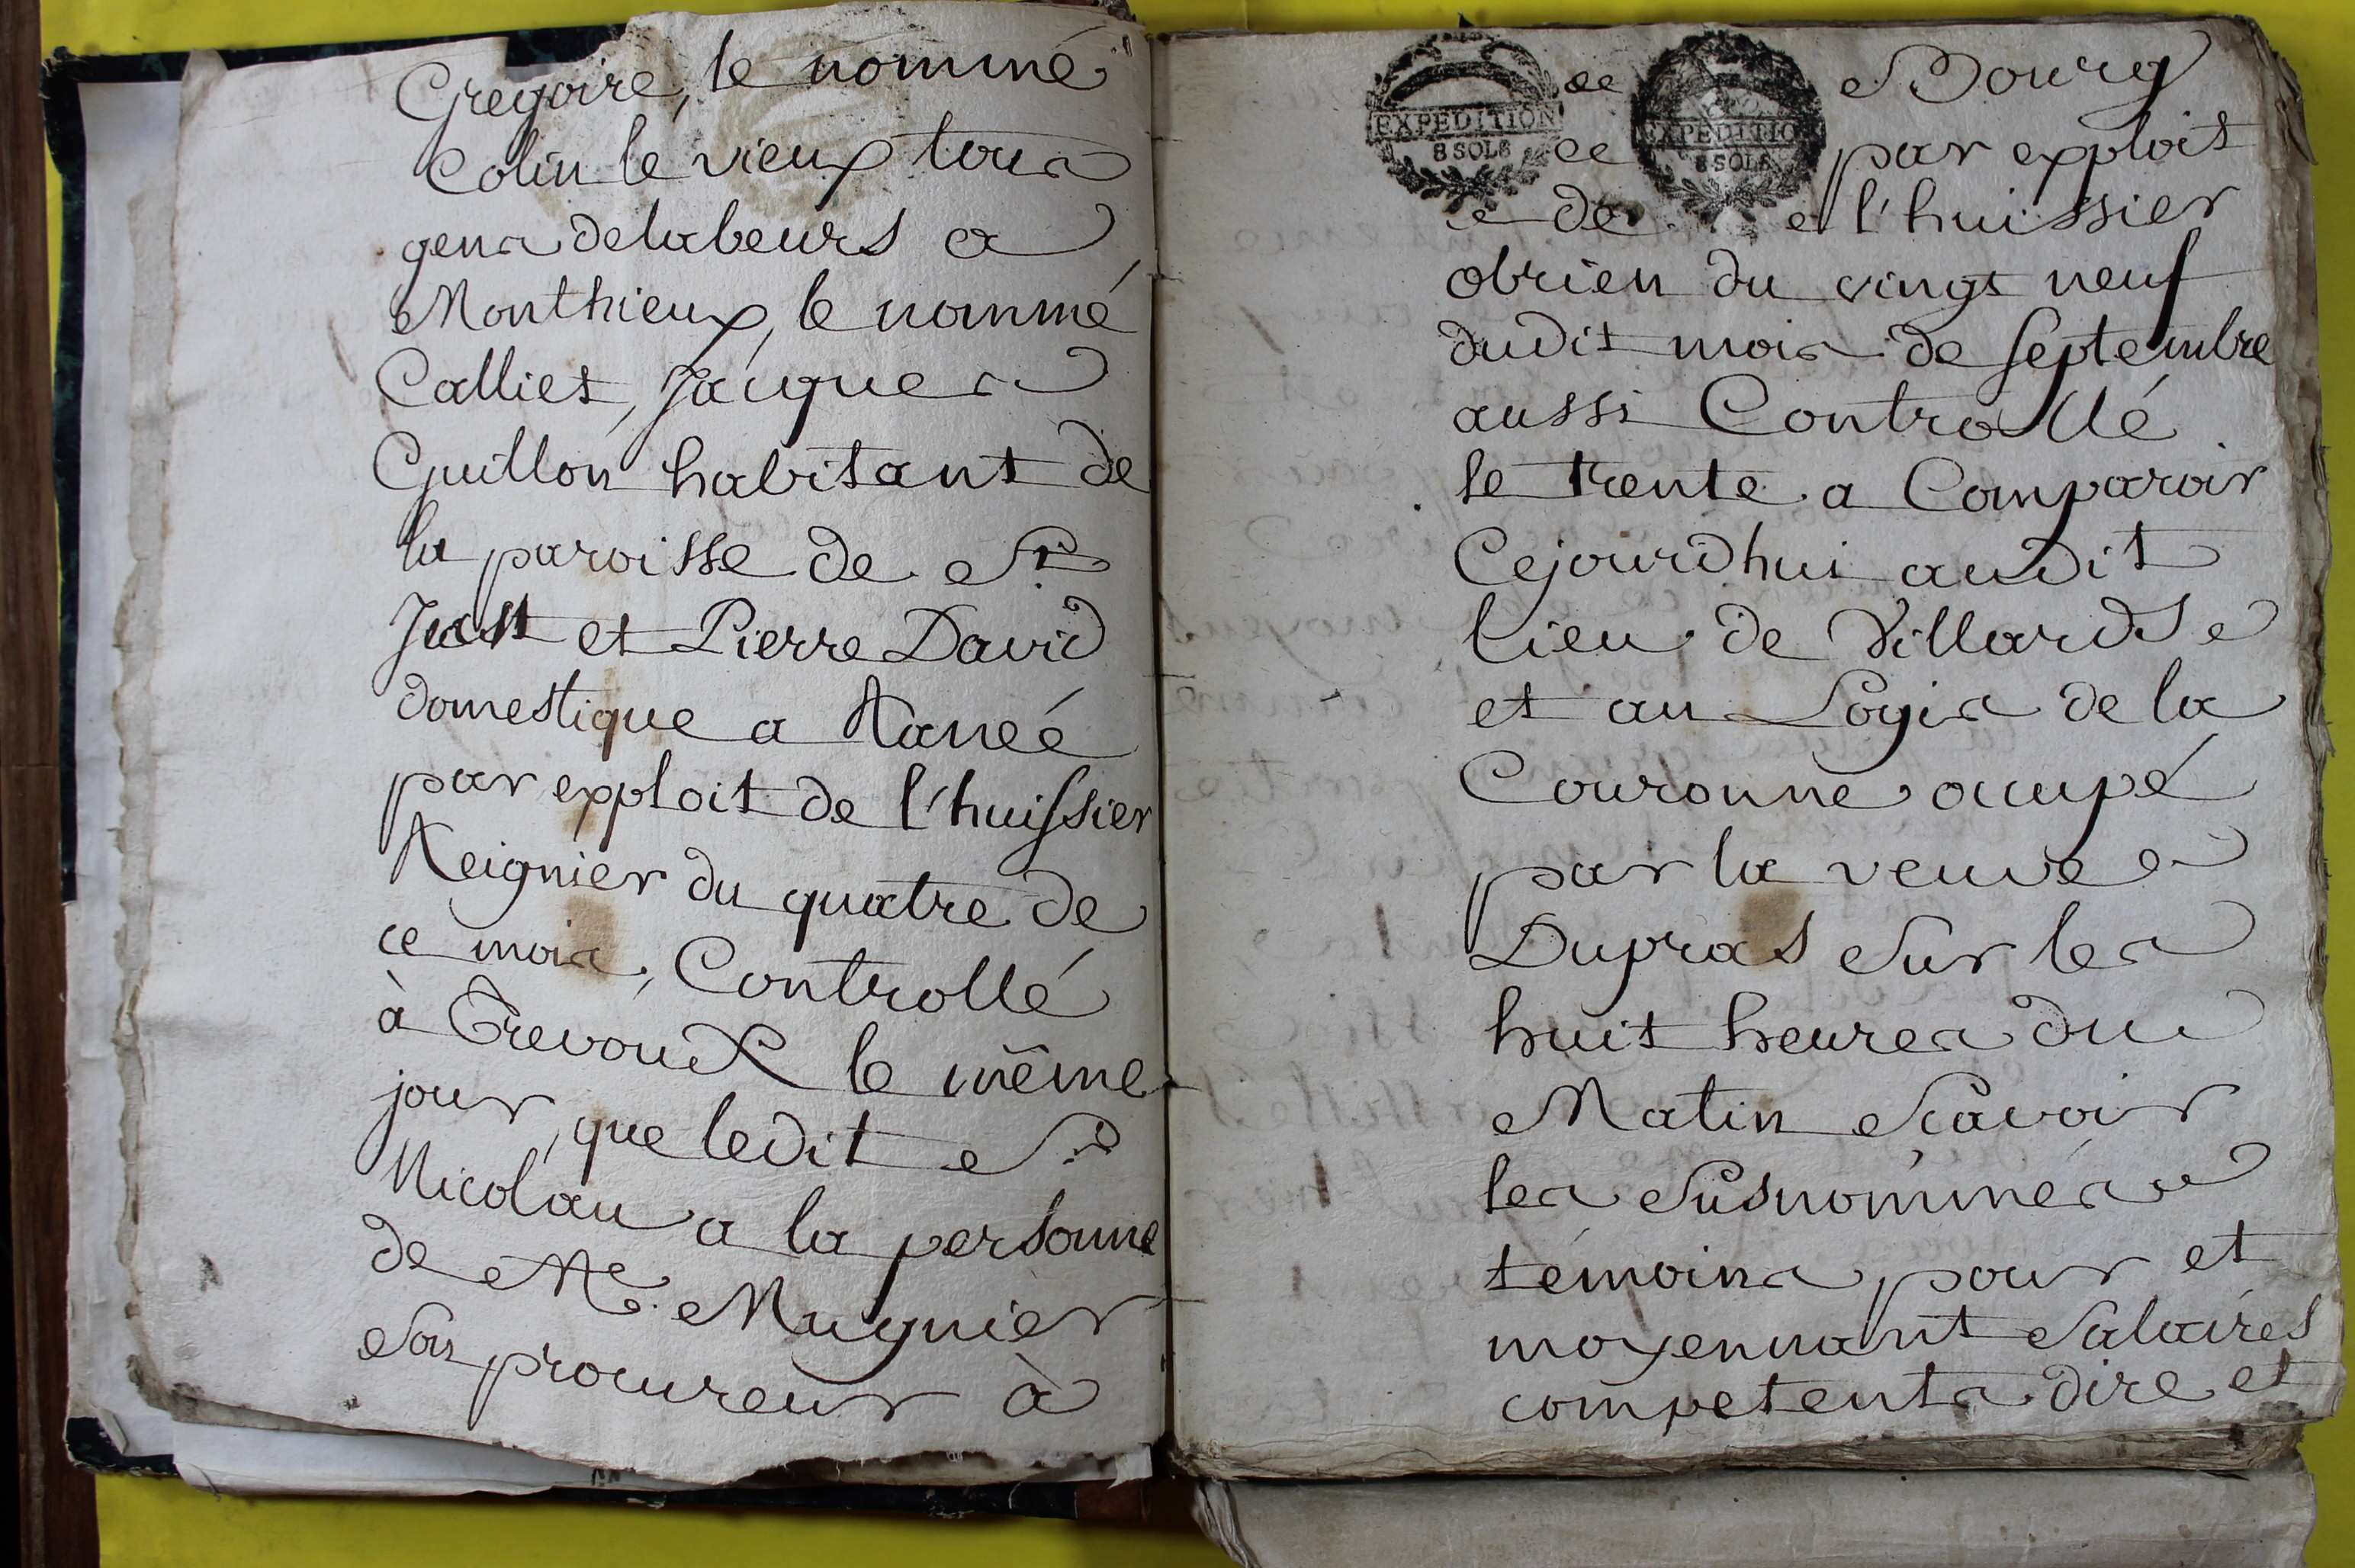 Gregoire, le nommé
Colin le vieux tous
gens delabeurs a
Monthieux, le nommé
Calliet, Jacques
Guillon habitant de
la paroisse de St
Just et Pierre David
domestique a Ranée
par exploit de l'huissier
Reignier du quatre de
ce mois, Controllé
à Trevoux le même
jour, que ledit Sr
Nicolau a la personne
de Me Mugnier
son procureur à
de Bourg
EXPEDITION
8 SOLS
EXPEDITIO
8 SOLS
ce par exploit
de l'huissier
obrien du vingt neuf
dudit mois de Septembre
aussi Controllé
le trente a Comparoir
Cejourdhui audit
lieu de Villards
et au Logis de la
Couronne ocupé
par la veuve
Dupras Sur les
huit heures du
Matin Scavoir
les Susnommés
témoins pour et
moyennant Salaires
competents dire et